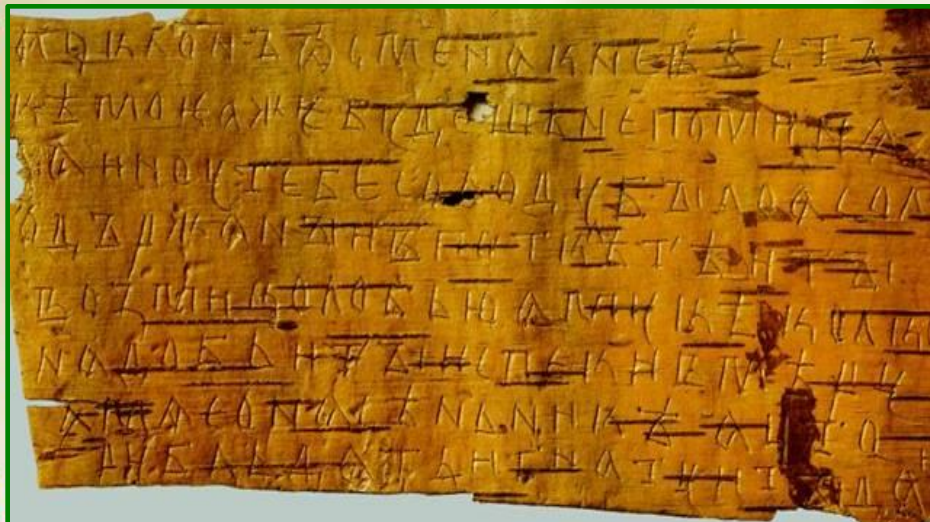 ПОКЛОНЪѾСМЕНАКНЕВѢСТЪ
КѢМОКАЖЕБУДЕШЬНЕПОМИНАЛ
АИНОУТЕБЕСОЛОДУБЫЛОАСОЛ
ОДЪРЖАНЪИВЪ
ВОZМИКОЛОБЬЮАМУКѢКОЛК
НАДОБЬИТЫИСПЕКИВМѢРУ
АМѦСОНАСѢНЬНИКѢАЦТО
РУБЛЬДАТЬИГНАТУИТ ДА